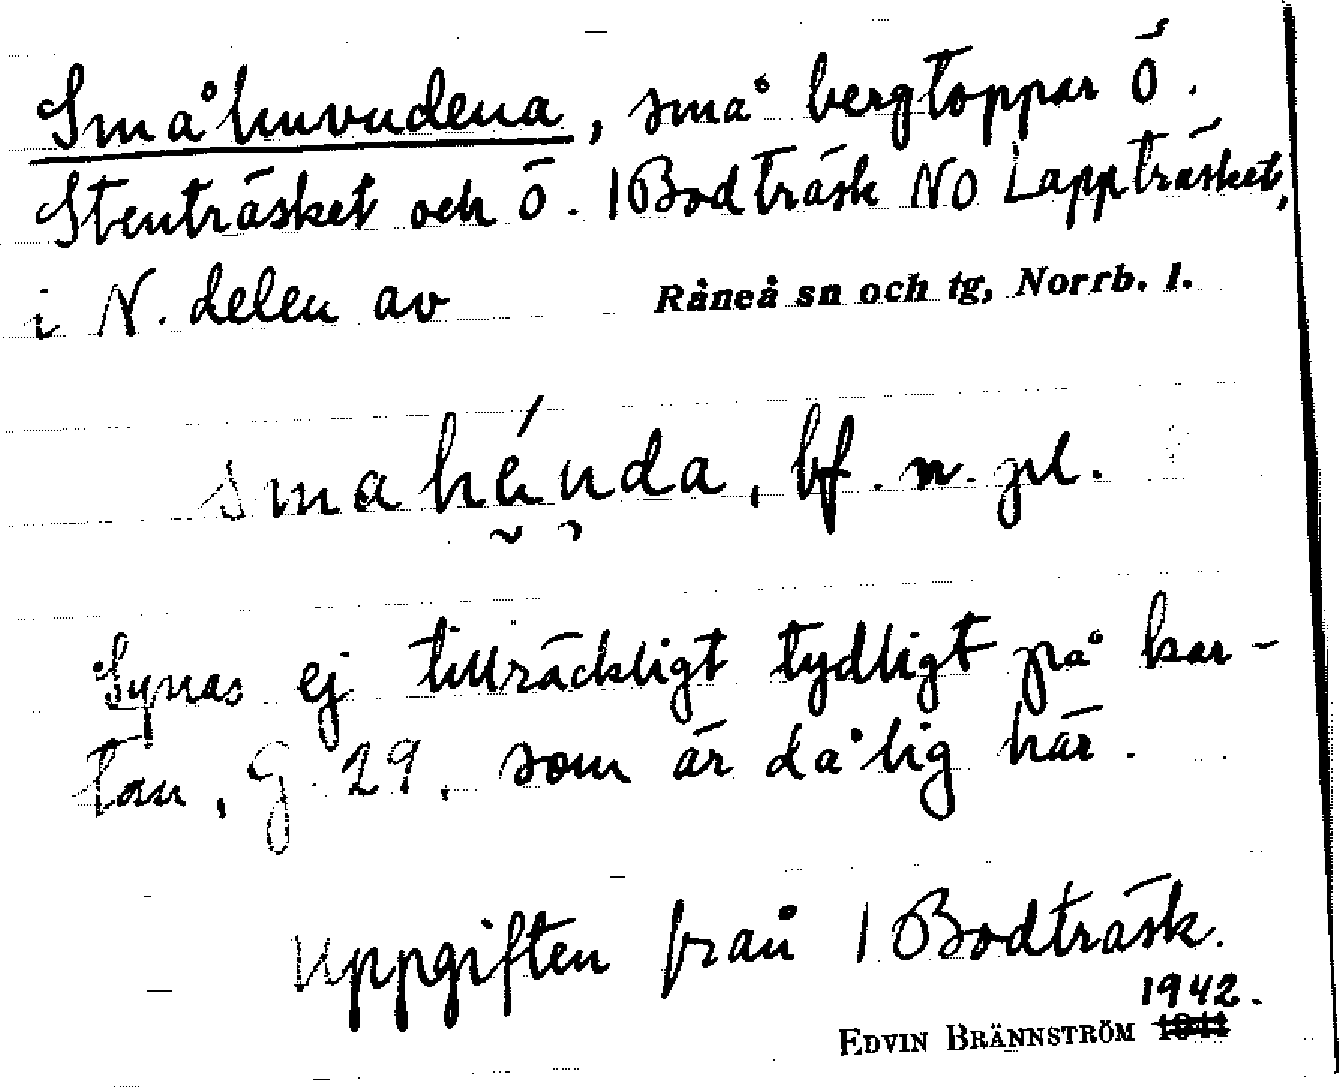 Småhuvudena, små bergtoppar Ö.
Stenträsket och Ö. l Bodträsk NO Lappträsket,
i N. delen av Råneå sn och tg, Norrb. l.
smahé̮nda, bf. n. pl.
Synas ej tillräckligt tydligt på kar-
tan, G 29, som är dålig här.
Uppgiften från l Bodträsk.
1942.
EDVIN BRÄNNSTRÖM 1941